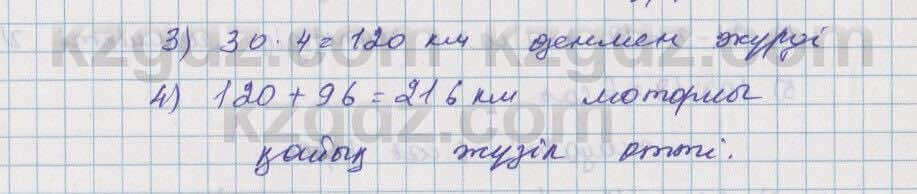 3) 30 · 4 = 120 км өзенмен жүрді
4) 120 + 96 = 216 км моторлы
қайық жүзіп өтті.
kzgdz.com
kzgdz.com